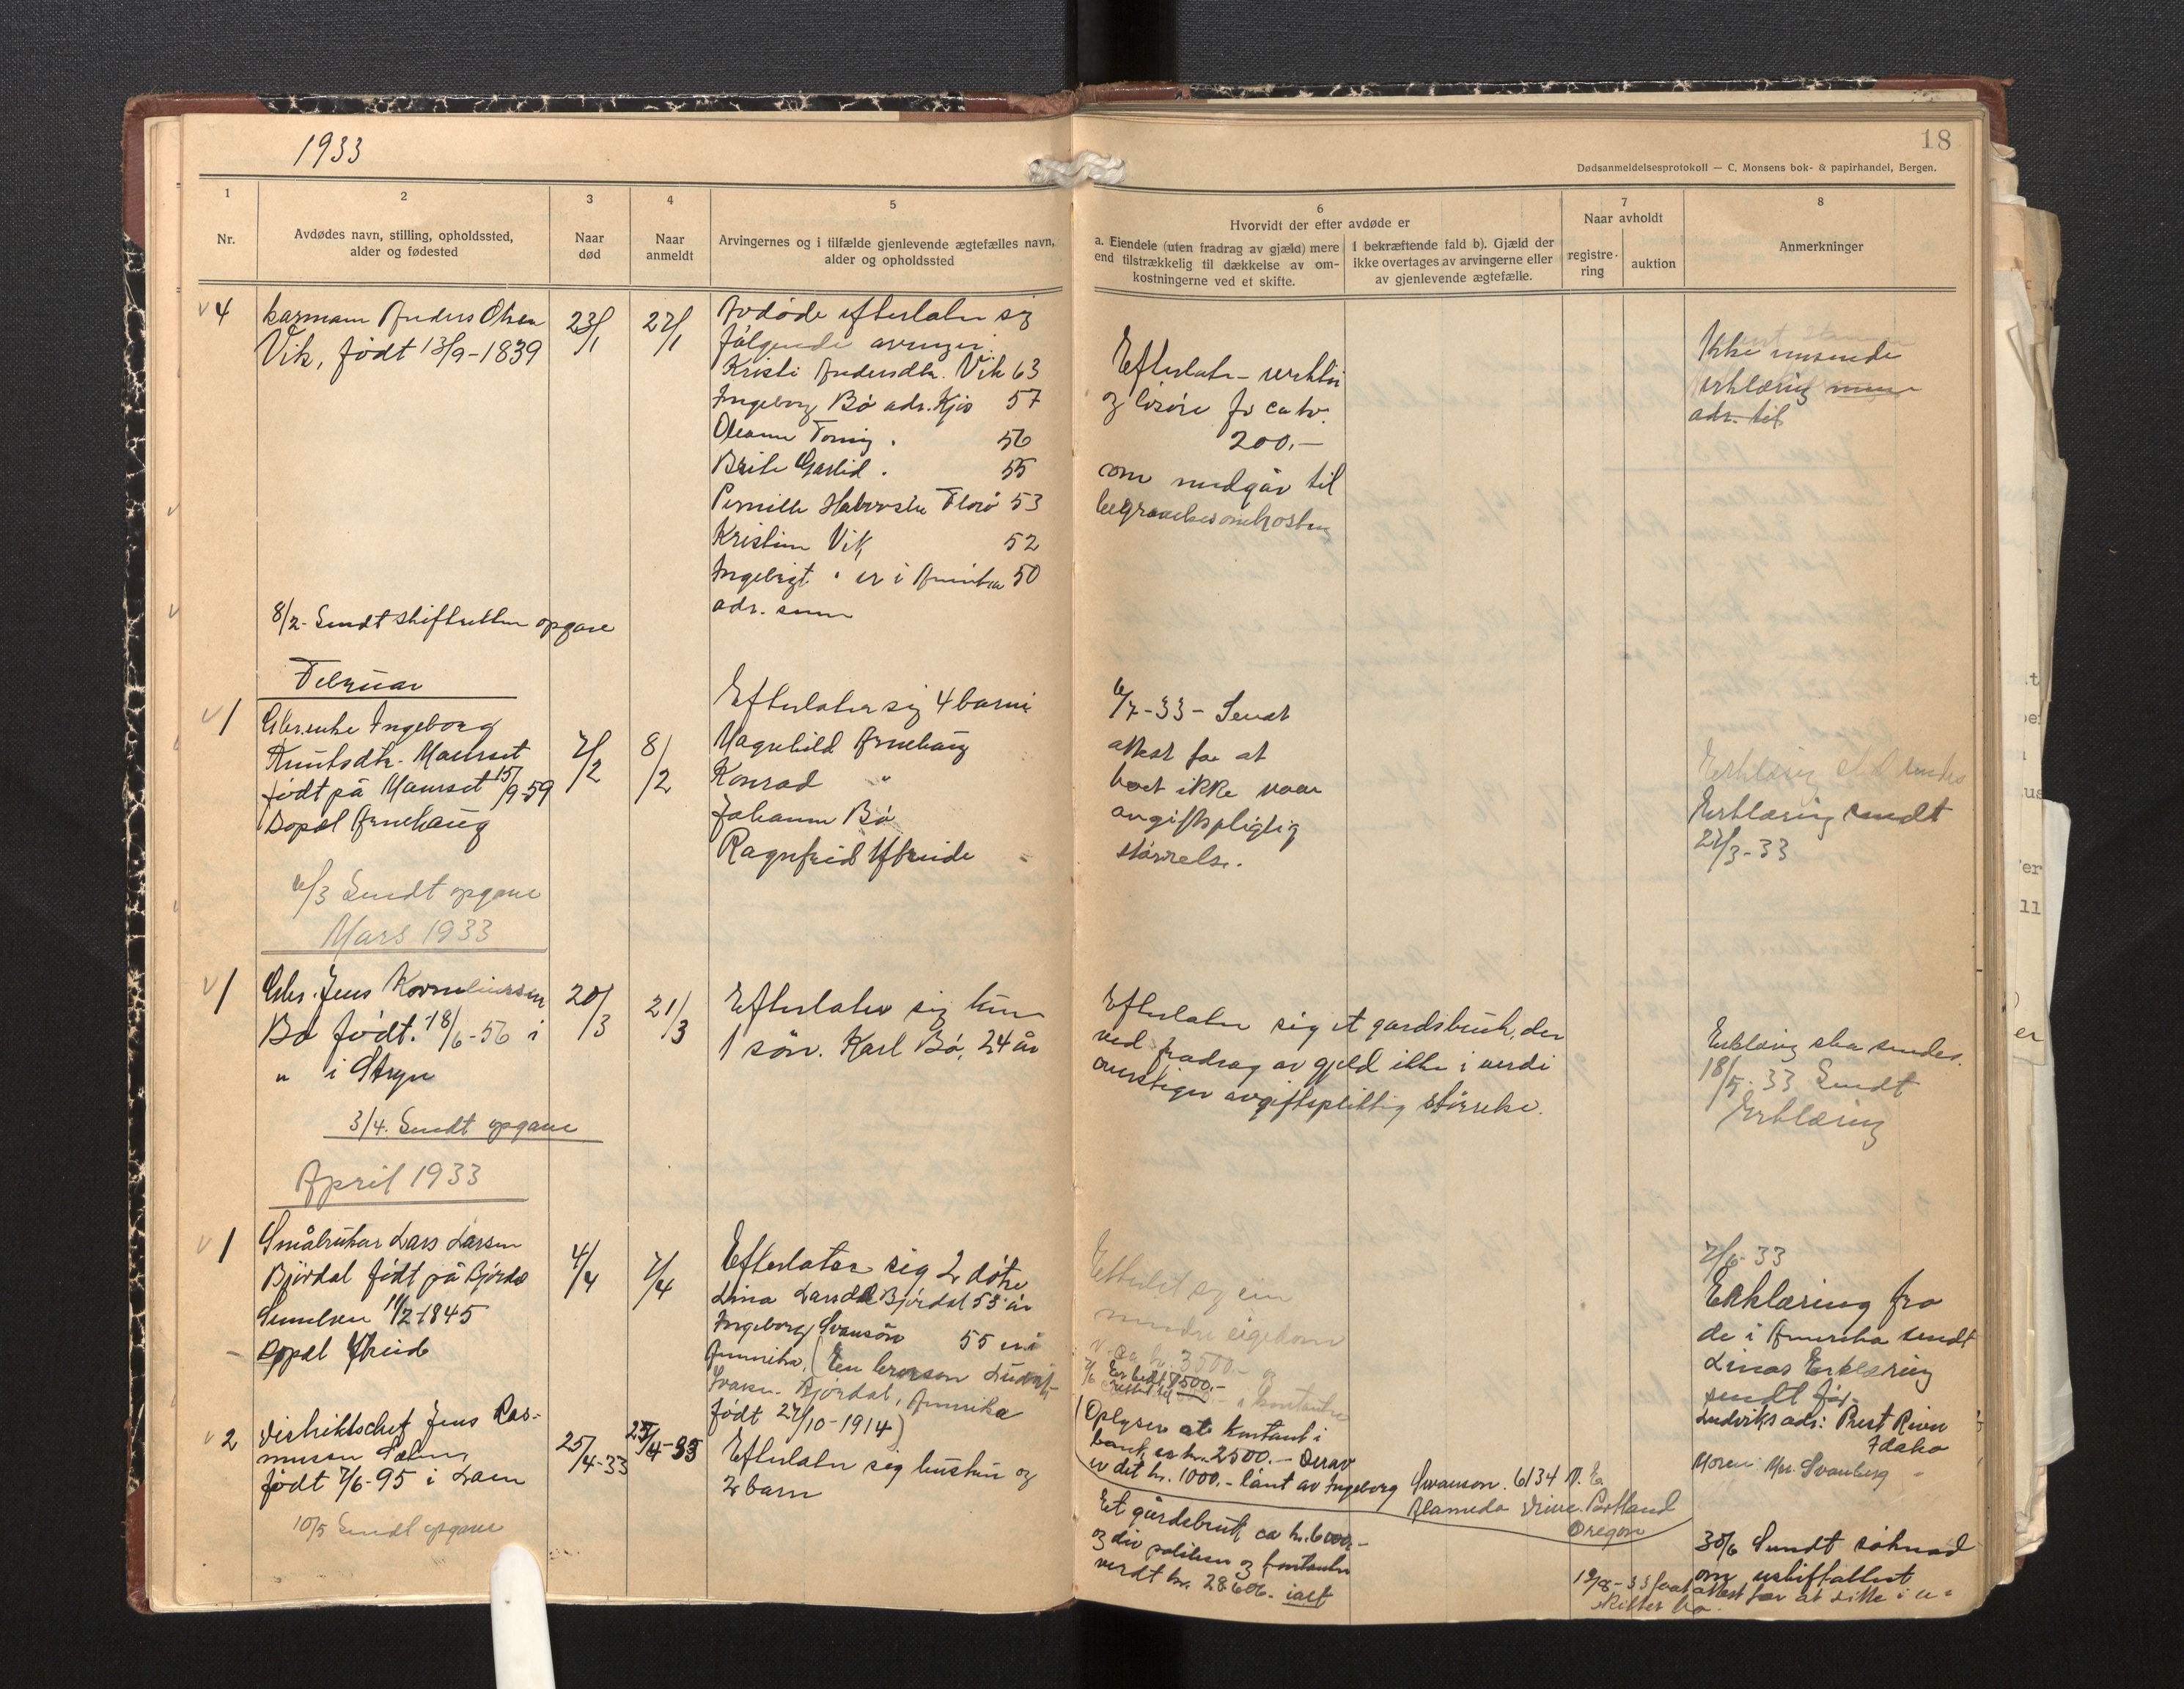 1933
18
Dødsanmeldelsesprotokoll — C. Monsens bok- & papirhandel, Bergen.
1
Nr.
2
Avdødes navn, stilling, opholdssted,
alder og fødested
3
Naar
død
4
Naar
anmeldt
5
Arvingernes og i tilfælde gjenlevende ægtefælles navn,
alder og opholdssted
6
Hvorvidt der efter avdøde er
a. Eiendele (uten fradrag av gjæld) mere
end tilstrækkelig til dækkelse av om-
kostningerne ved et skifte.
i bekræftende fald b). Gjæld der
ikke overtages av arvingerne eller
av gjenlevende ægtefælle.
7
Naar avholdt
registre-
ring
auktion
8
Anmerkninger
4
karmann Anders Olsen
Vik, født 13/9-1839
23/1
27/1
Avdøde efterlater sig
følgende arvinger:
Kristi Andersdtr. Vik 63
Ingeborg Bø adr. Kjøs 57
Oleanna Tonning 56
Brite Garlid 55
Pernille Florø 53
Kristine Vik 52
Ingebrigt " er i Amerika 50
adr. senere
8/2- Sendt skifteretten opgave
Efterlater
og løsøre for ca kr.
200,-
som medgår til
begravelsesomkostn
Ikke
erklæring
adr. til
Februar
1
Gbr.enke Ingeborg
Knutsdtr. Maurset
født på Maurset 15/9-59
Bopæl Arnehaug
7/2
8/2
Efterlater sig 4 barn:
Magnhild Arnehaug
Konrad "
Johanne Bø
Ragnfrid Ytreide
6/7-33- Sendt
attest for at
boet ikke var
avgiftspligtig
størrelse.
Erklæring skal sendes
Erklæring sendt
27/3-33
6/3 Sendt opgave
Mars 1933
1
Gbr. Jens Korneliussen
Bø født: 18/6-56 i
" i Stryn
20/3
21/3
Efterlater sig kun
1 søn. Karl Bø, 24 år
Efterlater sig et gardsbruk, der
ved fradrag av gjeld ikke i verdi
overstiger avgiftspliktig størrelse.
Erklæring ska sendes.
18/5-33 Sendt
Erklæring
3/4. Sendt opgave
April 1933
1
Småbruker Lars Larsen
Bjørdal født på Bjørdal
Sunelven 11/2-1845
Bopæl
4/4
7/4
Efterlater sig 2 døtre
Lina Larsdtr Bjørdal 53 år
Ingeborg Svansön 55 er i
Amerika. (
Bjørdal, Amerika
født 27/10-1914)
Efterlot sig en
mindre eigedom
v. ca kr. 3500.- og
i kontanter
(Oplyser at kontant i
bank er kr. 2500.- Derav
er det kr. 1000.- lånt av Ingeborg Swanson. 6134 N. E.
Alameda Drive. Portland
Oregon
7/6-33
Erklæring fra
de i Amerika sendt
Linas Erklæring
sendt før.
Ludviks adr: Priest River
Idaho
Moren: Mrs. Svanberg
2
distriktschef Jens Ras-
mussen
født 7/6-95 i Loen
25/4-33
25/4-33
Efterlater sig hustru og
2 barn
Et gårdsbruk ca kr. 6000,-
og div poliser og kontanter
verdt kr. 28606. ialt
30/6 Sendt søknad
om uskifteattest
19/8-33 faat attest for at sitte i u-
skiftet bo.
10/5 Sendt opgave